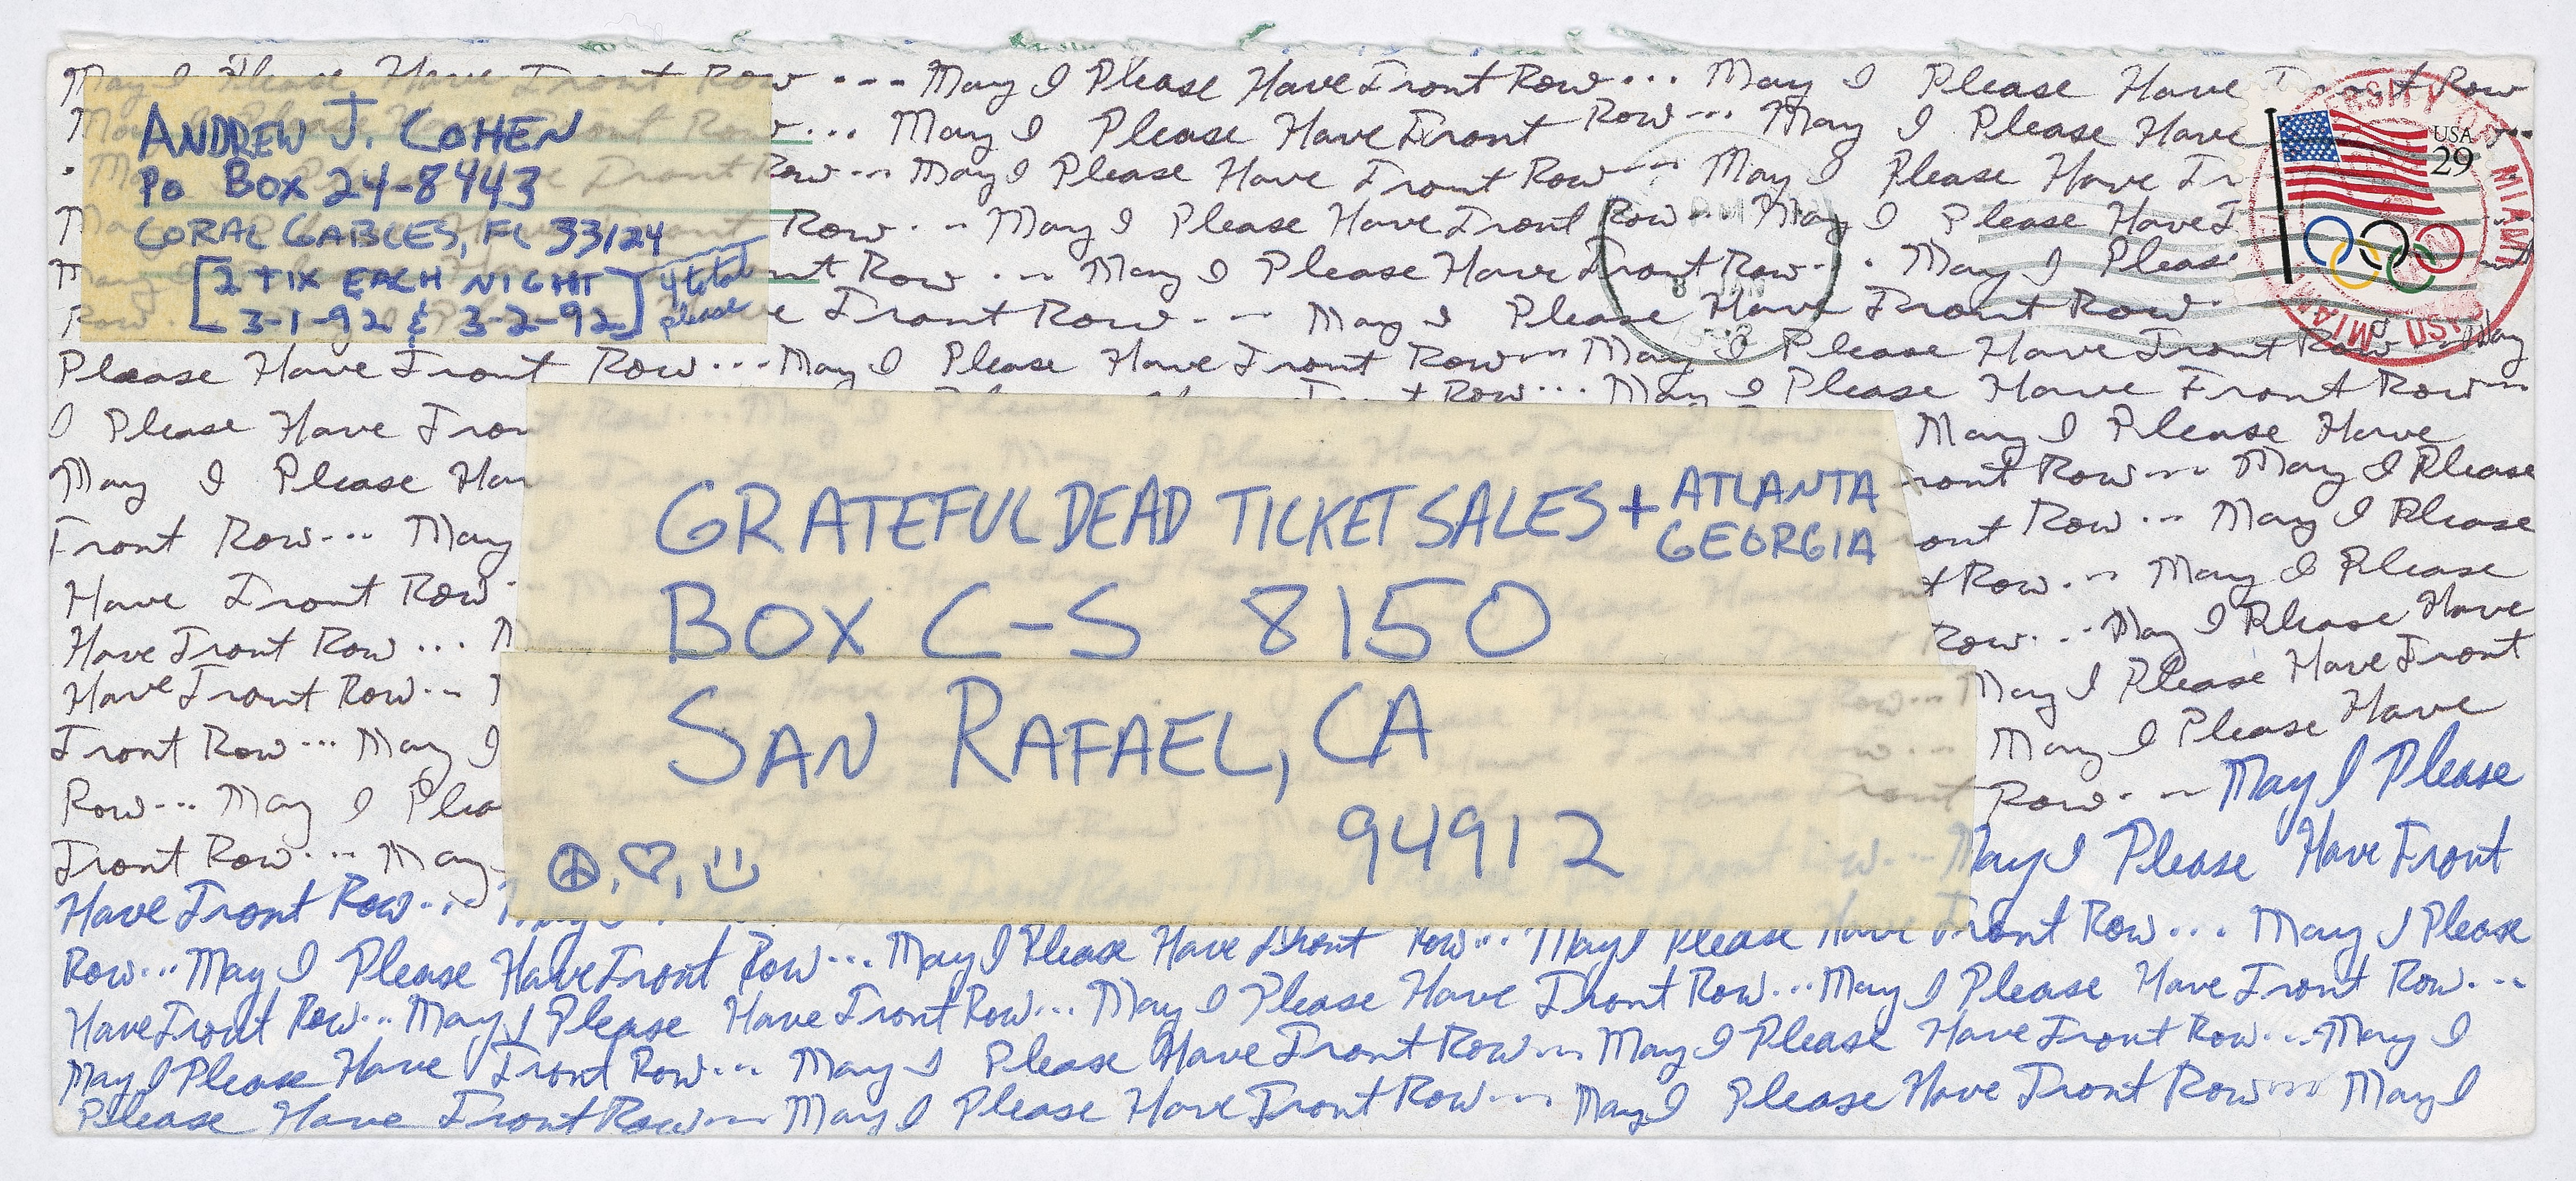 May I Please Have Front Row --- May I Please Have Front Row... May I Please Have Front Row
ANDREW J. COHEN
PO BOX 24-8443
CORAL GABLES, FL 33124
[2 TIX EACH NIGHT
3-1-92 & 3-2-92]
4 total
please
Row... May I Please Have Front Row... May I Please Have
Row... May I Please Have Front Row... May I Please Have Fr
Row... May I Please Have Front Row... May I Please Have F
nt Row... May I Please Have Front Row... May I Pleas
e Front Row... May I Please Have Front Row.
USA
29
MIAMI
Please Have Front Row... May I Please Have Front Row... May I Please Have Front Row... May
Row... May I Please Have Front Row...
I Please Have Fron
May I Please Have
May I Please Hav
ront Row... May I Please
Front Row... May
ont Row... May I Please
Have Front Row
t Row... May I Please
Have Front Row...
Row... May I Please Have
Have Front Row...
May I Please Have Front
Front Row... May I
May I Please Have
Row... May I Plea
Row... May I Please
Front Row... May
May I Please Have Front
GRATEFUL DEAD TICKET SALES + ATLANTA
GEORGIA
BOX C-S 8150
SAN RAFAEL, CA
94912
☮, ♡, :)
Have Front Row...
Row... May I Please Have Front Row... May I Please Have Front Row... May I Please Have Front Row... May I Please
Have Front Row... May I Please Have Front Row... May I Please Have Front Row... May I Please Have Front Row...
May I Please Have Front Row... May I Please Have Front Row... May I Please Have Front Row... May I
Please Have Front Row... May I Please Have Front Row... May I Please Have Front Row... May I